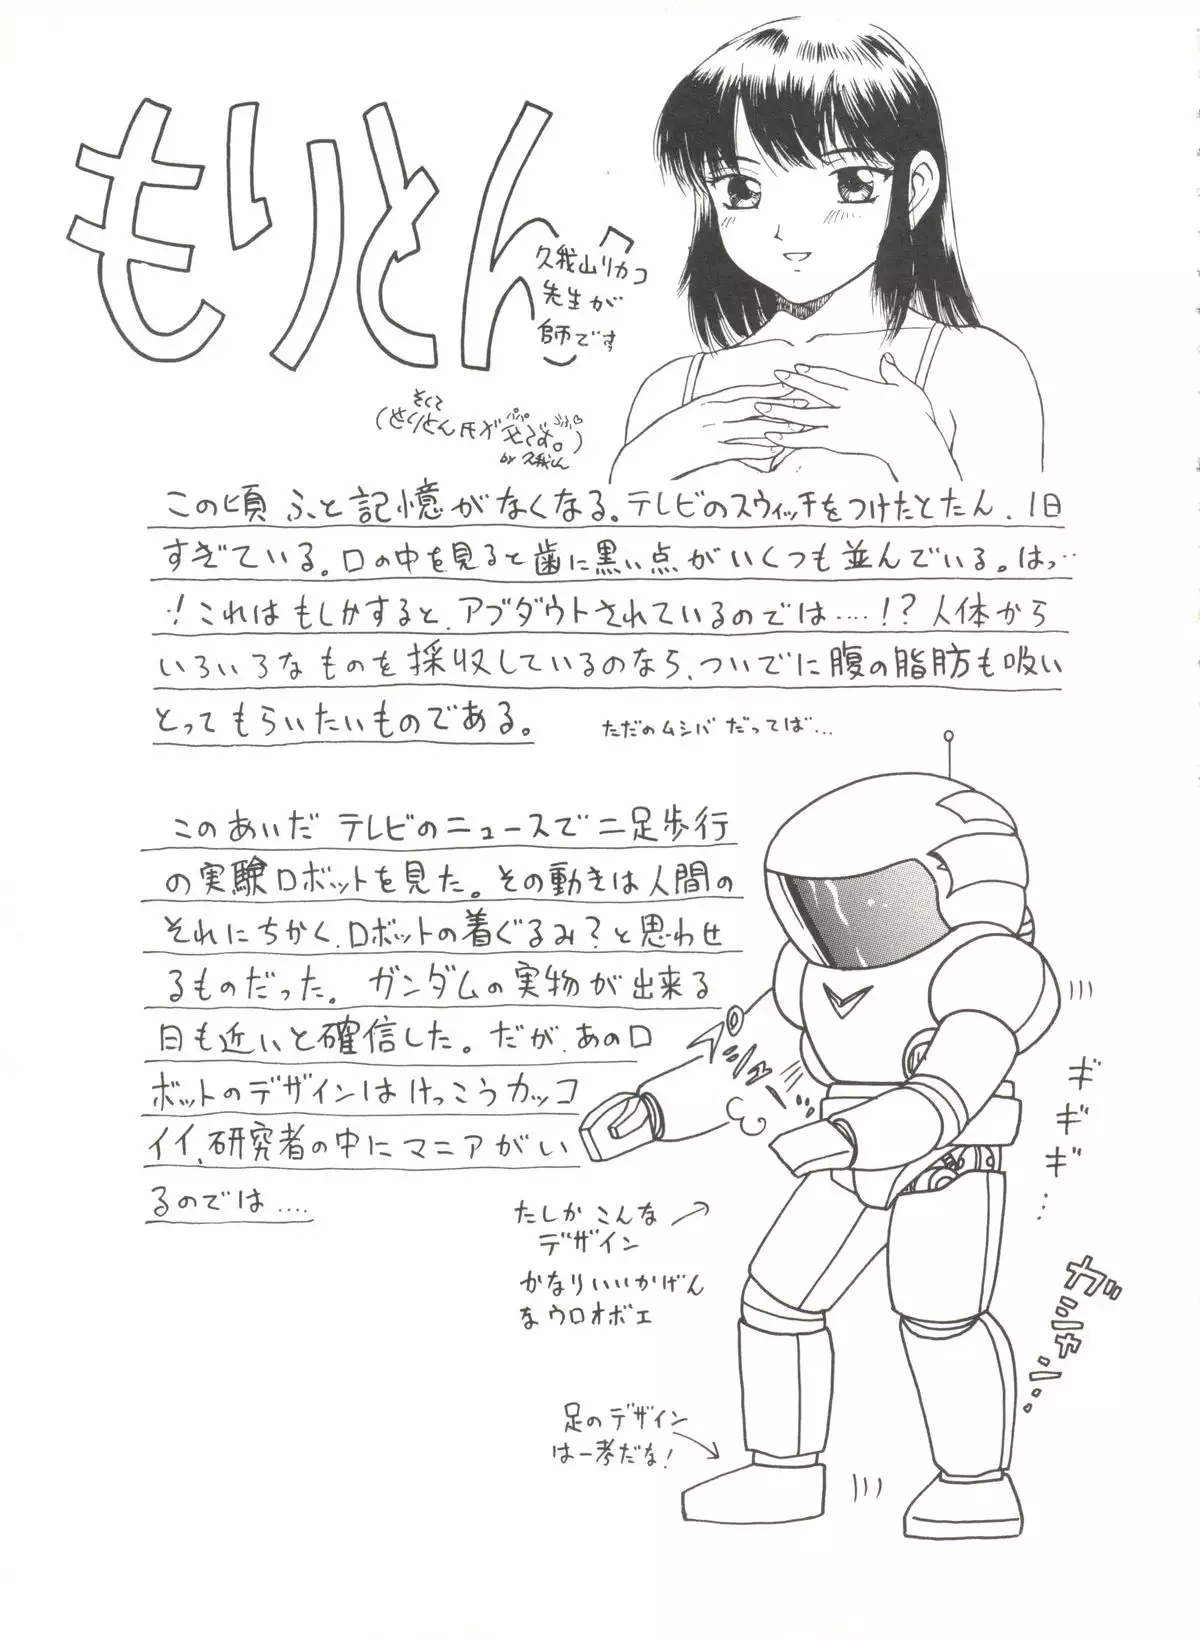 もりとん
久我山リカコ
先生が
師です
そして
(もりとん氏が
by 久我しん
この頃ふと記憶がなくなる。テレビのスウィッチをつけたとたん、1日
すぎている。口の中を見ると歯に黒い点がいくつも並んでいる。はっ…
!これはもしかすると、アブダウトされているのでは……!?人体から
いろいろなものを採収しているのなら、ついでに腹の脂肪も吸い
とってもらいたいものである。
ただのムシバだってば…
このあいだテレビのニュースで二足歩行
の実験ロボットを見た。その動きは人間の
それにちかく、ロボットの着ぐるみ?と思わせ
るものだった。ガンダムの実物が出来る
日も近いと確信した。だが、あのロ
ボットのデザインはけっこうカッコ
イイ、研究者の中にマニアがい
るのでは….
たしかこんな
デザイン
かなりいいかげん
なウロオボエ
足のデザイン
は一考だな!
ギギギ…
ガシャン..